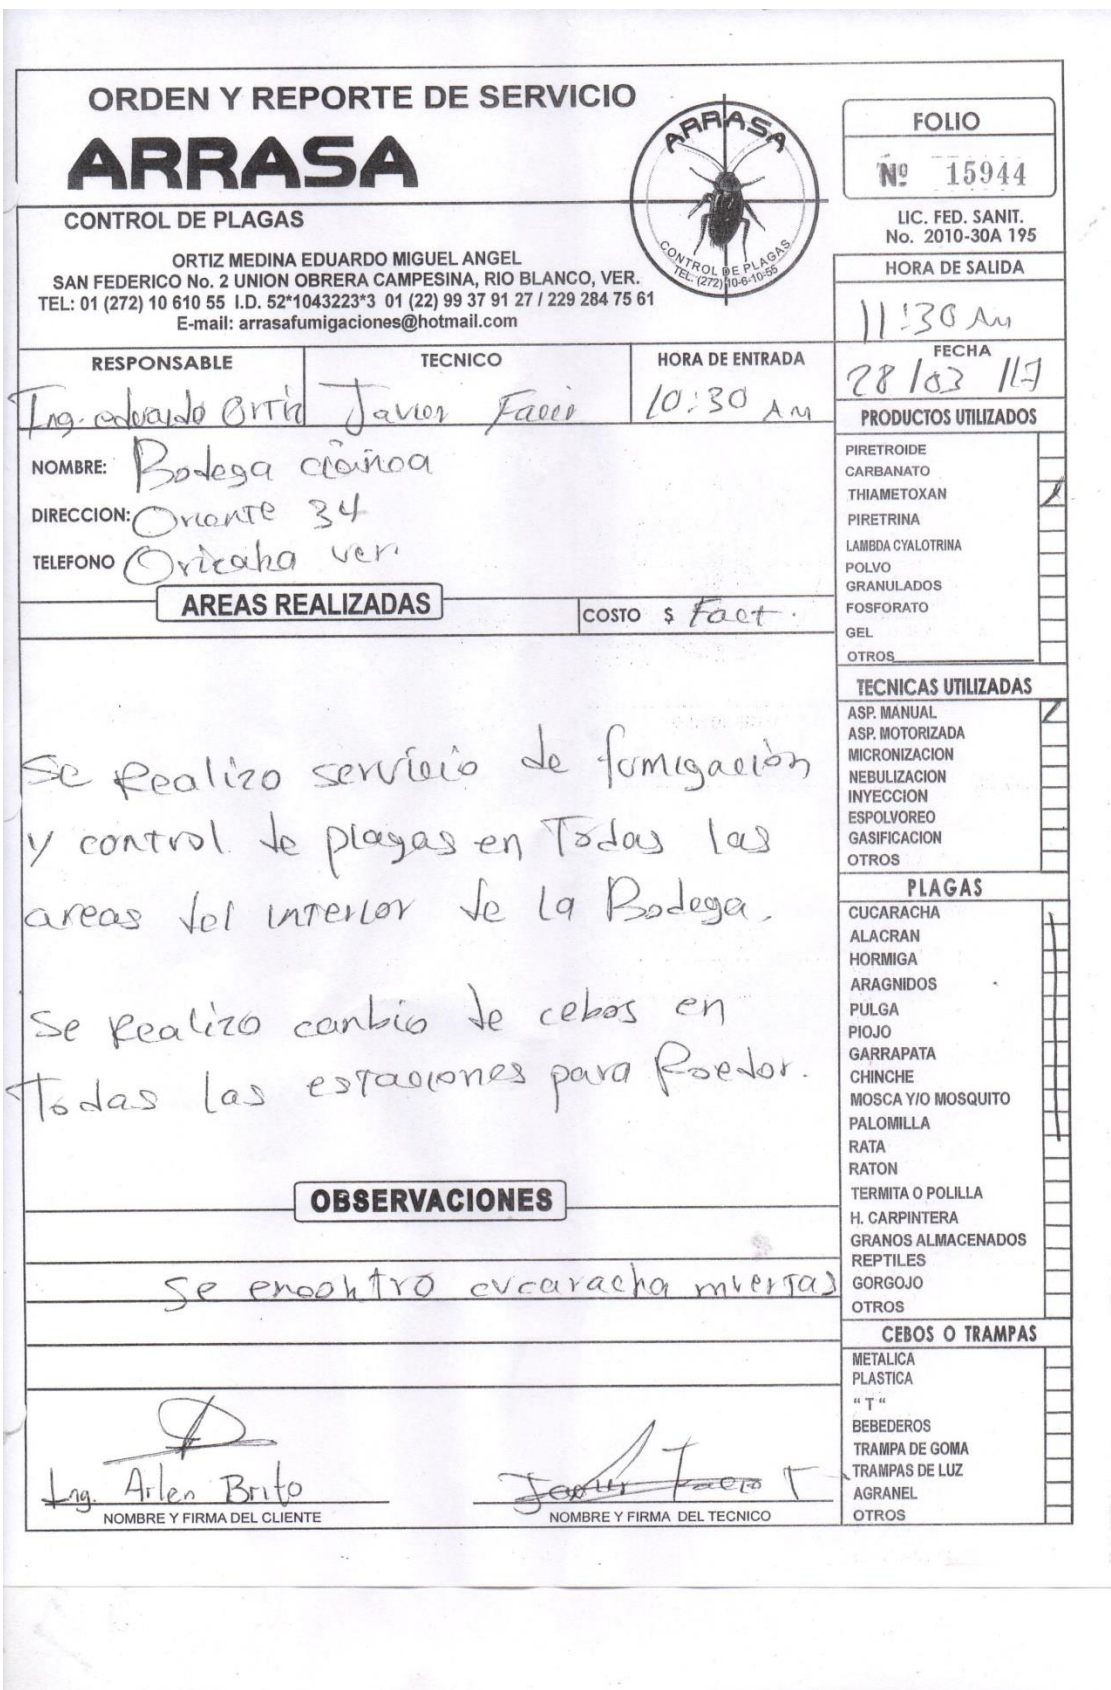 ORDEN Y REPORTE DE SERVICIO
ARRASA
CONTROL DE PLAGAS
ORTIZ MEDINA EDUARDO MIGUEL ANGEL
SAN FEDERICO No. 2 UNION OBRERA CAMPESINA, RIO BLANCO, VER.
TEL: 01 (272) 10 610 55 I.D. 52*1043223*3 01 (22) 99 37 91 27 / 229 284 75 61
E-mail: arrasafumigaciones@hotmail.com
ARRASA
CONTROL DE PLAGAS
TEL. (272) 10-6-10-55
FOLIO
Nº 15944
LIC. FED. SANIT.
No. 2010-30A 195
HORA DE SALIDA
11:30 Am
FECHA
28/03/17
RESPONSABLE
Ing. eduardo Ortiz
TECNICO
Javier
HORA DE ENTRADA
10:30 AM
NOMBRE: Bodega
DIRECCION: Oriente 34
TELEFONO Orizaba ver.
AREAS REALIZADAS
COSTO $ Fact.
Se Realizo servicio de fumigación
y control de plagas en Todas las
areas del interior de la Bodega.
Se Realizo canbio de cebos en
Todas las estaciones para Roedor.
OBSERVACIONES
Se encontro cucaracha muertas
Ing. Arlen Brito
NOMBRE Y FIRMA DEL CLIENTE
Javier T
NOMBRE Y FIRMA DEL TECNICO
PRODUCTOS UTILIZADOS
PIRETROIDE
CARBANATO
THIAMETOXAN
PIRETRINA
LAMBDA CYALOTRINA
POLVO
GRANULADOS
FOSFORATO
GEL
OTROS
TECNICAS UTILIZADAS
ASP. MANUAL
ASP. MOTORIZADA
MICRONIZACION
NEBULIZACION
INYECCION
ESPOLVOREO
GASIFICACION
OTROS
PLAGAS
CUCARACHA
ALACRAN
HORMIGA
ARAGNIDOS
PULGA
PIOJO
GARRAPATA
CHINCHE
MOSCA Y/O MOSQUITO
PALOMILLA
RATA
RATON
TERMITA O POLILLA
H. CARPINTERA
GRANOS ALMACENADOS
REPTILES
GORGOJO
OTROS
CEBOS O TRAMPAS
METALICA
PLASTICA
"T"
BEBEDEROS
TRAMPA DE GOMA
TRAMPAS DE LUZ
AGRANEL
OTROS